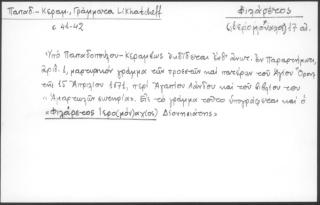 Παπαδ.-Κεραμ, Γράμματα L. Khatcheff
Φιλάρετος
σ. 41-42
(ἱερομόναχος) 17 αἰ.
Ὑπὸ Παπαδοπούλου-Κεραμέως ἐκδίδεται ἔνθ' ἀνωτ. ἐν Παραρτήματι,
ἀριθ. 1, μαρτυρικὸν γράμμα τῶν προεστῶν καὶ πατέρων τοῦ Ἁγίου Ὄρους
τῆς 15 Ἀπριλίου 1671, περὶ Ἀγαπίου Λάνδου καὶ τοῦ βιβλίου του
"Ἁμαρτωλῶν σωτηρία". Εἰς τὸ γράμμα τοῦτο ὑπογράφεται καὶ ὁ
«Φιλάρετος Ἱερο(μόν)αχ(ος) Διονυσιάτης»